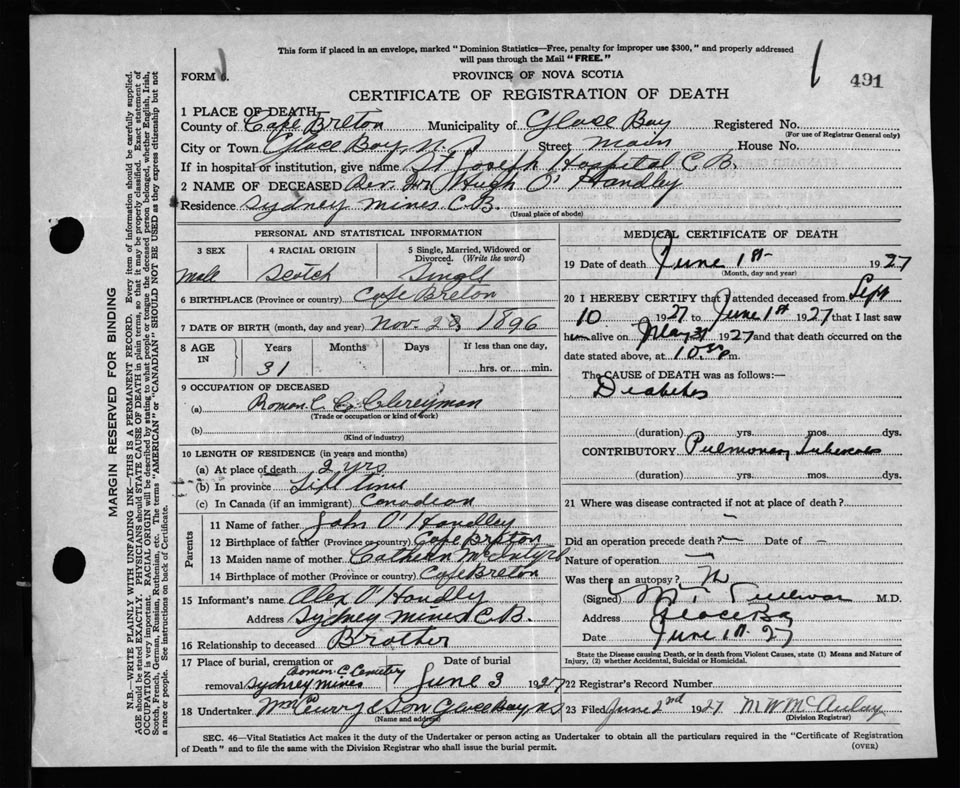 This form if placed in an envelope, marked "Dominion Statistics—Free, penalty for improper use $300," and properly addressed
will pass through the Mail "FREE."
FORM 6.
PROVINCE OF NOVA SCOTIA
491
CERTIFICATE OF REGISTRATION OF DEATH
1 PLACE OF DEATH
County of Cape Breton Municipality of Glace Bay Registered No.
(For use of Registrar General only)
City or Town Glace Bay, N. S Street Main House No.
If in hospital or institution, give name St Joseph Hospital C.B.
2 NAME OF DECEASED Rev. Hugh O' Handley
Residence Sydney Mines C.B.
(Usual place of abode)
PERSONAL AND STATISTICAL INFORMATION
3 SEX
4 RACIAL ORIGIN
5 Single, Married, Widowed or
Divorced. (Write the word)
Male Scotch Single
6 BIRTHPLACE (Province or country) Cape Breton
7 DATE OF BIRTH (month, day and year) Nov. 28 1896
8 AGE IN
Years Months Days If less than one day,
31 hrs. or min.
9 OCCUPATION OF DECEASED
(a) Roman C Clergyman
(Trade or occupation or kind of work)
(b)
(Kind of industry)
10 LENGTH OF RESIDENCE (in years and months)
(a) At place of death 2 yrs
(b) In province Life time
(c) In Canada (if an immigrant) Canadian
Parents
11 Name of father John O' Handley
12 Birthplace of father (Province or country) Cape Breton
13 Maiden name of mother Catherin McIntyre
14 Birthplace of mother (Province or country) Cape Breton
15 Informant's name Alex O' Handly
Address Sydney Mines C.B.
16 Relationship to deceased Brother
17 Place of burial, cremation or Date of burial
Roman C. Cemetry
removal Sydney Mines June 3 1927
18 Undertaker Wm Curry & Son Glace Bay N S
(Name and address)
MEDICAL CERTIFICATE OF DEATH
19 Date of death June 1st 1927
(Month, day and year)
20 I HEREBY CERTIFY that I attended deceased from Sept
10 1927 to June 1st 1927 that I last saw
him alive on May 31 1927 and that death occurred on the
date stated above, at 10 p.m.
The CAUSE of DEATH was as follows:—
Diabetes
(duration) yrs. mos. dys.
CONTRIBUTORY Pulmonary Tuberculosis
(duration) yrs. mos. dys.
21 Where was disease contracted if not at place of death?
Did an operation precede death? — Date of —
Nature of operation —
Was there an autopsy? No
(Signed) M. T. Sullivan M.D.
Address Glace Bay
Date June 1st. 27
State the Disease causing Death, or in death from Violent Causes, state (1) Means and Nature of
Injury, (2) whether Accidental, Suicidal or Homicidal.
22 Registrar's Record Number
23 Filed June 2nd 1927 M W McAulay
(Division Registrar)
SEC. 46—Vital Statistics Act makes it the duty of the Undertaker or person acting as Undertaker to obtain all the particulars required in the "Certificate of Registration
of Death" and to file the same with the Division Registrar who shall issue the burial permit.
(OVER)
MARGIN RESERVED FOR BINDING
N.B.—WRITE PLAINLY WITH UNFADING INK—THIS IS A PERMANENT RECORD. Every item of information should be carefully supplied.
AGE should be stated EXACTLY. PHYSICIANS should STATE CAUSE OF DEATH in plain terms, so that it may be properly classified. Exact statement of
OCCUPATION is very important. RACIAL ORIGIN will be described by stating to what people or tongue the deceased person belonged, whether English, Irish,
Scotch, French, German, Russian, Ruthenian, etc. The terms "AMERICAN" or "CANADIAN" SHOULD NOT BE USED as they express citizenship but not
a race or people. See instructions on back of Certificate.